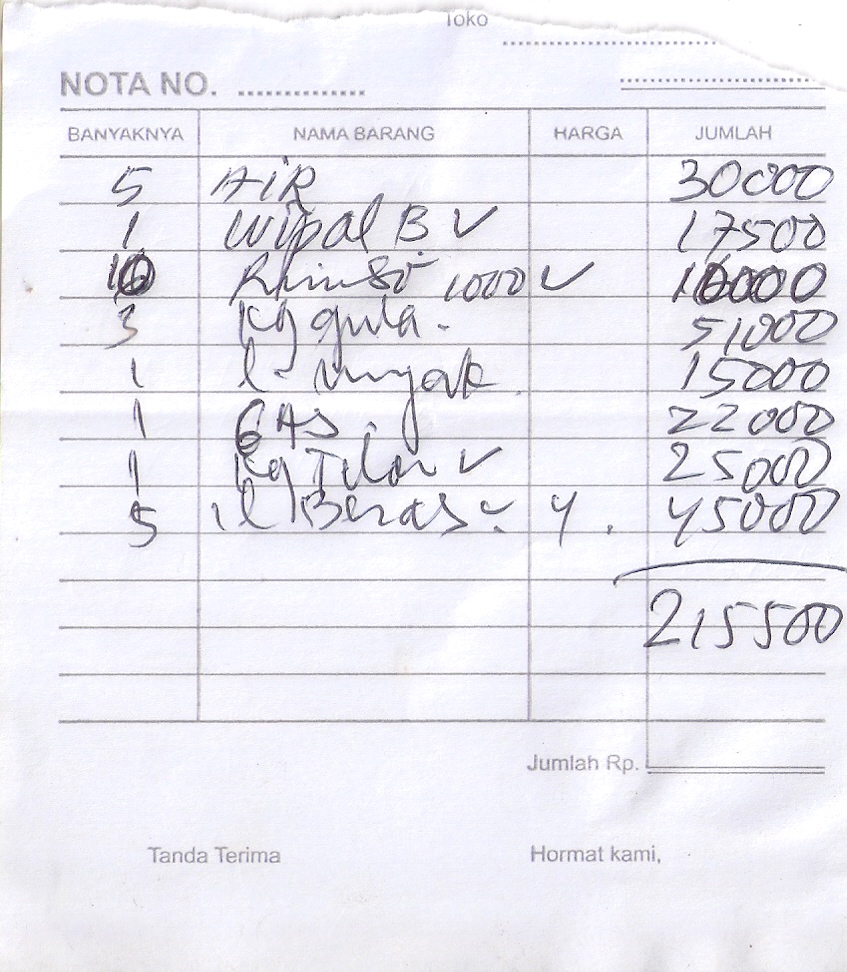 Toko ....................
NOTA NO. ............
BANYAKNYA NAMA BARANG HARGA JUMLAH
5 AiR 30000
1 Wipal B ✓ 17500
10 Rhinso 1000 ✓ 10000
3 kg gula. 51000
1 l minyak 15000
1 GAS. 22000
1 kg Telor ✓ 25000
5 l Beras 45000
215500
Jumlah Rp.
Tanda Terima Hormat kami,